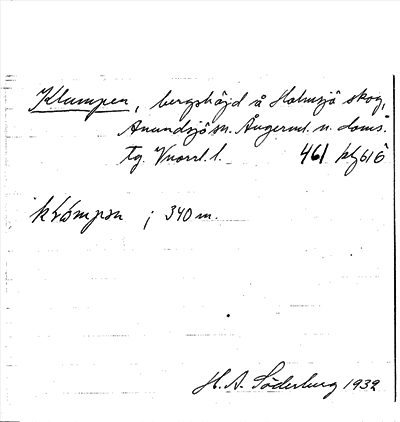 Klumpen, bergshöjd å Holmsjö skog,
Anundsjö sn. Ångerml. n. doms.
tg. Vnorrl. l. 461
; 340 m.
H. A. Söderburg 1932